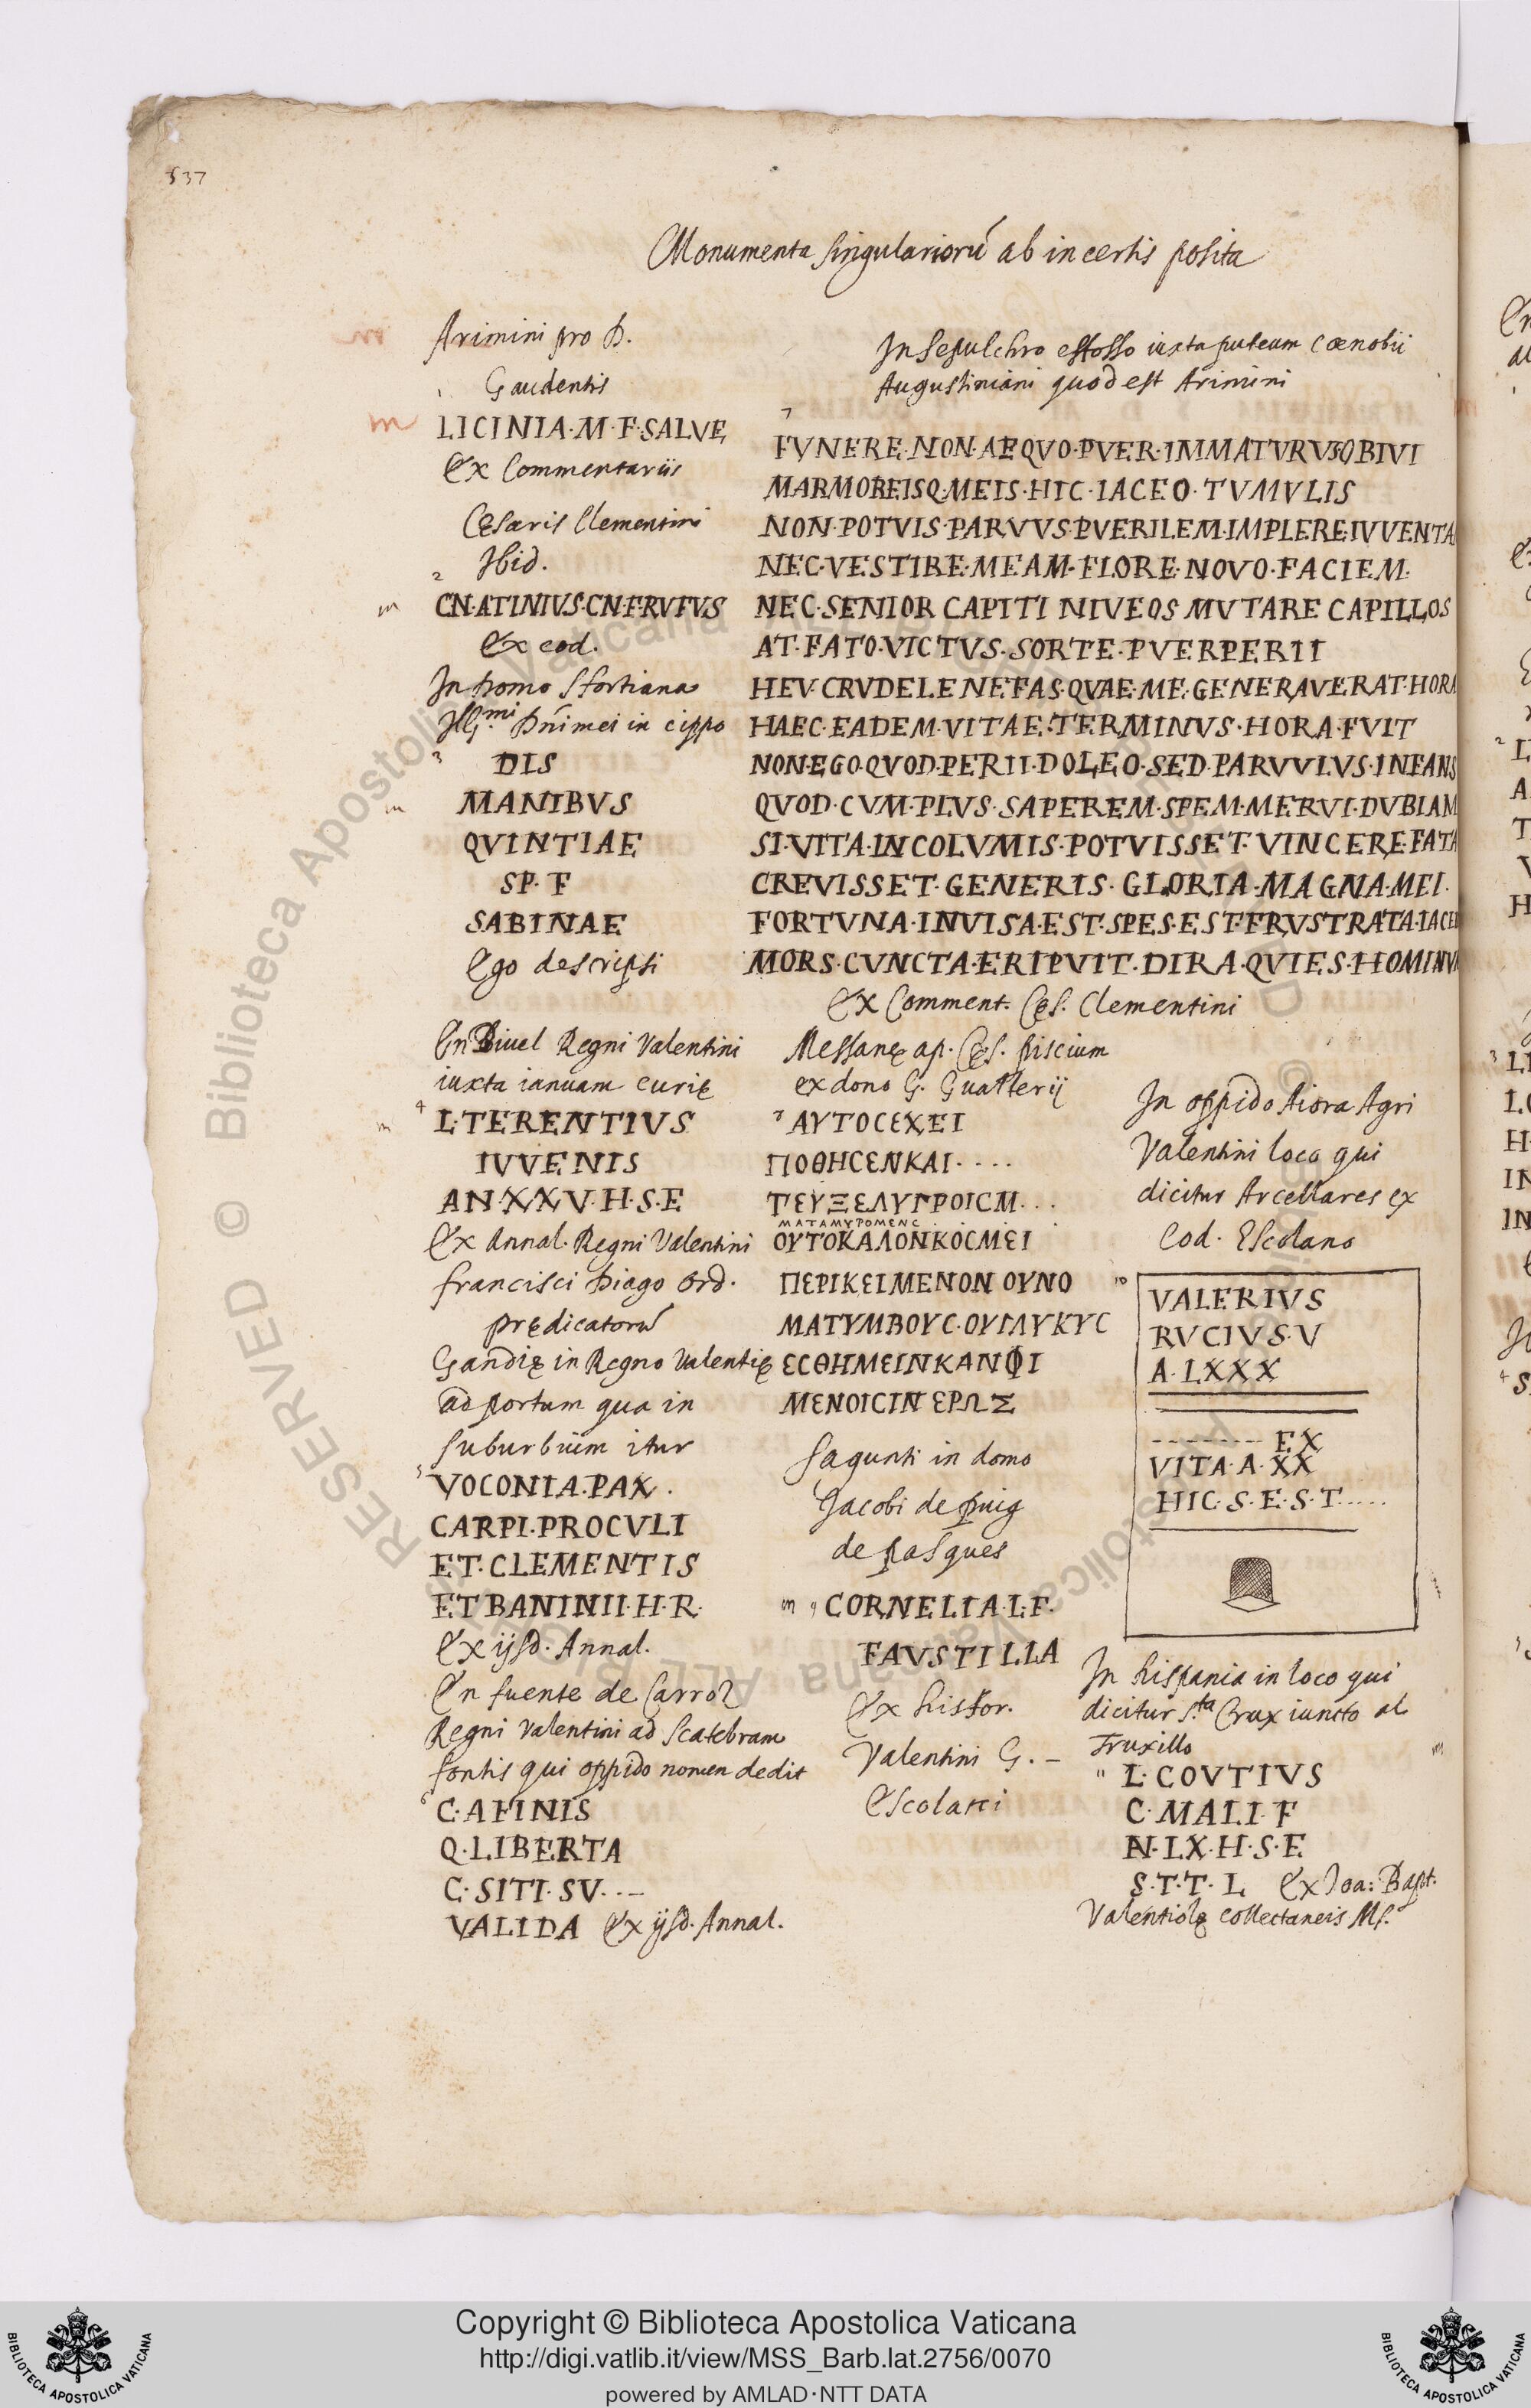 537
Monumenta singulariorū ab incertis posita
Arimini pro D.
Gaudentis
1
LICINIA·M·F·SALVE
Ex Commentariis
Cęsaris Clementini
Ibid.
2
CN·ATINIVS·CN·F·RVFVS
Ex eod.
In Domo Sfortiana
Ill.mi Dn̄i mei in cippo
3 DIS
MANIBVS
QVINTIAE
SP·F
SABINAE
Ego descripsi
En Biuel Regni Valentini
iuxta ianuam curię
4
L·TERENTIVS
IVVENIS
AN·XXV·H·S·E
Ex Annal. Regni Valentini
francisci Diago Ord.
prędicatorū
Gandię in Regno Valentię
ad portam qua in
suburbium itur
5
VOCONIA·PAX·
CARPI·PROCVLI
ET·CLEMENTIS
ET BANINII·H·R·
Ex ijsd. Annal.
En fuente de Carroz
Regni Valentini ad Scatebram
fontis qui oppido nomen dedit
6
C·AFINIS
Q·LIBERTA
C·SITI·SV··–
VALIDA Ex ijsd. Annal.
In Sepulchro effosso iuxta puteum Cœnobii
Augustiniani quod est Arimini
7
FVNERE·NON·AEQVO·PVER·IMMATVRVS·OBIVI
MARMOREISQ·MEIS·HIC·IACEO·TVMVLIS
NON·POTVIS·PARVVS·PVERILEM·IMPLERE·IVVENTA
NEC·VESTIRE·MEAM·FLORE·NOVO·FACIEM·
NEC·SENIOR CAPITI NIVEOS MVTARE CAPILLOS
AT·FATO·VICTVS·SORTE·PVER PERII
HEV·CRVDELE NEFAS·QVAE·ME·GENERAVERAT·HORA
HAEC·EADEM·VITAE·TERMINVS·HORA·FVIT
NON·EGO·QVOD·PERII·DOLEO·SED·PARVVLVS·INFANS
QVOD·CVM·PLVS·SAPEREM·SPEM·MERVI·DVBIAM
SI·VITA·INCOLVMIS·POTVISSET·VINCERE·FATA
CREVISSET·GENERIS·GLORIA·MAGNA·MEI·
FORTVNA·INVISA·EST·SPES·EST·FRVSTRATA·IACE
MORS·CVNCTA·ERIPVIT·DIRA·QVIES·HOMINVM
Ex Comment. Cęs. Clementini
Messanę ap. Cęs. piscium
ex dono G. Gualterij
8 ΑΥΤΟCΕΧΕΙ
ΠΟΘΗCΕΝΚΑΙ····
ΤΕΥΞΕΛΥΓΡΟΙCΜ···
ΜΑΤΑΜΥΡΟΜΕΝC
ΟΥΤΟΚΑΛΟΝΚΟCΜΕΙ
ΠΕΡΙΚΕΙΜΕΝΟΝ ΟΥΝΟ
ΜΑΤΥΜΒΟΥC·ΟΥΓΛΥΚΥC
ΕCΘΗΜΕΙΝΚΑΝΦΙ
ΜΕΝΟΙCΙΝ ΕΡΩΣ
Sagunti in domo
Jacobi de puig
de pasques
9 CORNELIA·L·F·
FAVSTILLA
Ex histor.
Valentini G. –
Escolani
In oppido Aiora Agri
Valentini loco qui
dicitur Arcellares ex
Cod. Escolano
10
VALERIVS
RVCIVS·V
A·LXXX
-------- EX
VITA·A·XX
HIC·S·E·S·T·····
In hispania in loco qui
dicitur S.ta Crux iuncto al
Truxillo
11 L·COVTIVS
C·MALI·F
N·LX·H·S·E
S·T·T·L Ex Joa: Bapt.
Valentiolę collectaneis Ms.
Copyright © Biblioteca Apostolica Vaticana
http://digi.vatlib.it/view/MSS_Barb.lat.2756/0070
powered by AMLAD·NTT DATA
BIBLIOTECA APOSTOLICA VATICANA
BIBLIOTECA APOSTOLICA VATICANA